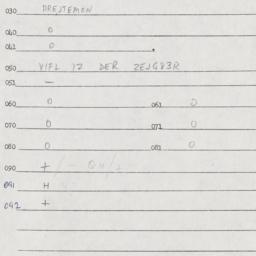 030 DRESTEMON
040 0
041 0
050 VIFL IZ DER ZEJGB3R
051 —
060 0 061 0
070 0 071 0
080 0 081 0
090 +
091 H
092 +